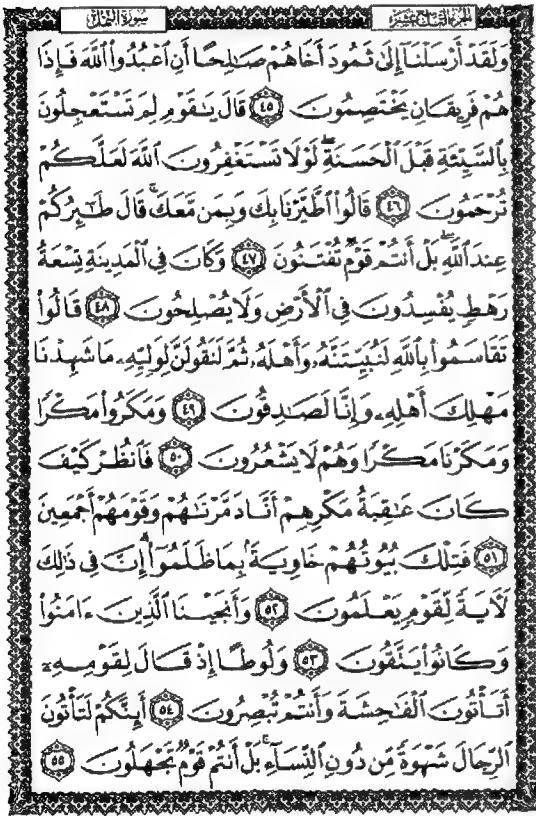 الجزء التاسع عشر
سورة النمل
وَلَقَدْ أَرْسَلْنَآ إِلَىٰ ثَمُودَ أَخَاهُمْ صَٰلِحًا أَنِ ٱعْبُدُوا۟ ٱللَّهَ فَإِذَا
هُمْ فَرِيقَانِ يَخْتَصِمُونَ ٤٥ قَالَ يَٰقَوْمِ لِمَ تَسْتَعْجِلُونَ
بِٱلسَّيِّئَةِ قَبْلَ ٱلْحَسَنَةِ ۖ لَوْلَا تَسْتَغْفِرُونَ ٱللَّهَ لَعَلَّكُمْ
تُرْحَمُونَ ٤٦ قَالُوا۟ ٱطَّيَّرْنَا بِكَ وَبِمَن مَّعَكَ ۚ قَالَ طَٰٓئِرُكُمْ
عِندَ ٱللَّهِ ۖ بَلْ أَنتُمْ قَوْمٌ تُفْتَنُونَ ٤٧ وَكَانَ فِى ٱلْمَدِينَةِ تِسْعَةُ
رَهْطٍ يُفْسِدُونَ فِى ٱلْأَرْضِ وَلَا يُصْلِحُونَ ٤٨ قَالُوا۟
تَقَاسَمُوا۟ بِٱللَّهِ لَنُبَيِّتَنَّهُۥ وَأَهْلَهُۥ ثُمَّ لَنَقُولَنَّ لِوَلِيِّهِۦ مَا شَهِدْنَا
مَهْلِكَ أَهْلِهِۦ وَإِنَّا لَصَٰدِقُونَ ٤٩ وَمَكَرُوا۟ مَكْرًا
وَمَكَرْنَا مَكْرًا وَهُمْ لَا يَشْعُرُونَ ٥٠ فَٱنظُرْ كَيْفَ
كَانَ عَٰقِبَةُ مَكْرِهِمْ أَنَّا دَمَّرْنَٰهُمْ وَقَوْمَهُمْ أَجْمَعِينَ
٥١ فَتِلْكَ بُيُوتُهُمْ خَاوِيَةًۢ بِمَا ظَلَمُوٓا۟ ۗ إِنَّ فِى ذَٰلِكَ
لَءَايَةً لِّقَوْمٍ يَعْلَمُونَ ٥٢ وَأَنجَيْنَا ٱلَّذِينَ ءَامَنُوا۟
وَكَانُوا۟ يَتَّقُونَ ٥٣ وَلُوطًا إِذْ قَالَ لِقَوْمِهِۦٓ
أَتَأْتُونَ ٱلْفَٰحِشَةَ وَأَنتُمْ تُبْصِرُونَ ٥٤ أَئِنَّكُمْ لَتَأْتُونَ
ٱلرِّجَالَ شَهْوَةً مِّن دُونِ ٱلنِّسَآءِ ۚ بَلْ أَنتُمْ قَوْمٌ تَجْهَلُونَ ٥٥